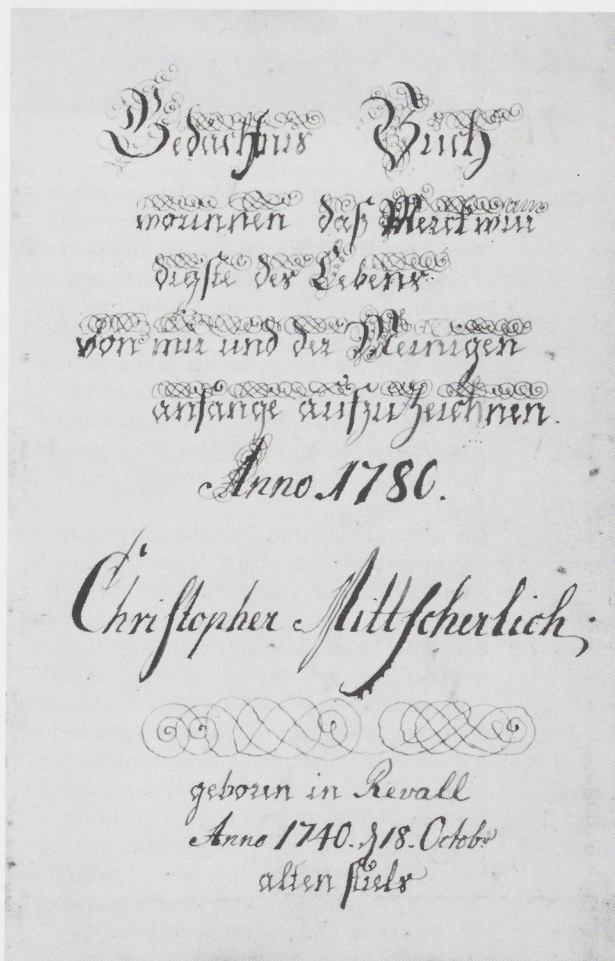 Gedächtnis Buch
worinnen daß Merckwür
digste des Lebens
von mir und der Meinigen
anfange aufzuzeichnen.
Anno 1780.
Christopher Mittscherlich
geboren in Revall
Anno 1740. d 18. Octobr
alten stiels